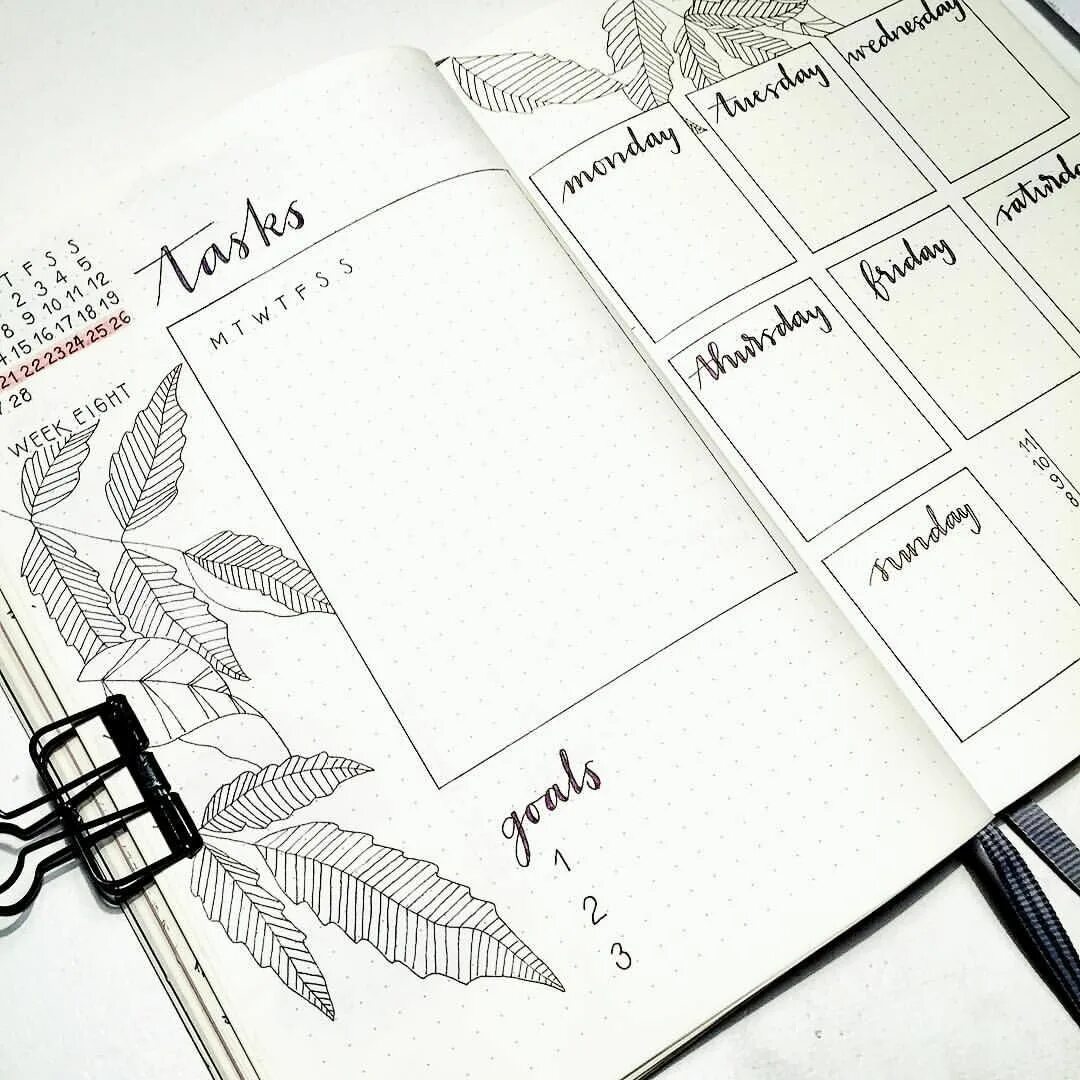 T F S S
2 3 4 5
8 9 10 11 12
15 16 17 18 19
21 22 23 24 25 26
28
WEEK EIGHT
tasks
M T W T F S S
goals
1
2
3
monday
tuesday
wednesday
thursday
friday
sunday
11
10
9
8